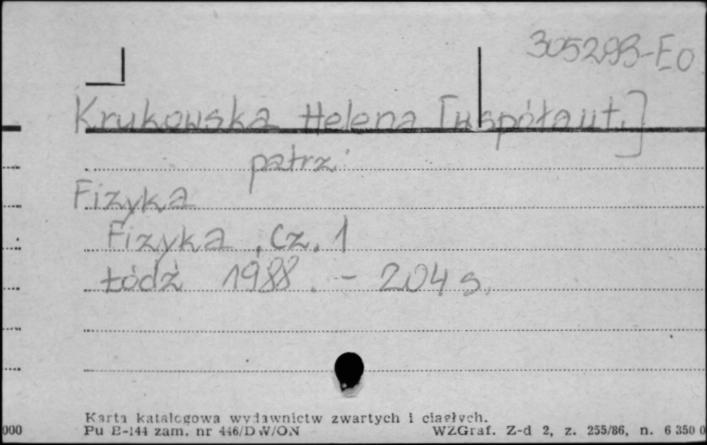 305293-E0
Krukowska Helena [współaut.]
patrz:
Fizyka
Fizyka, cz. 1
Łódź 1988. - 204 s.
Karta katalogowa wydawnictw zwartych i ciągłych.
000 Pu B-144 zam. nr 446/DW/ON WZGraf. Z-d 2, z. 255/86, n. 6 350 0